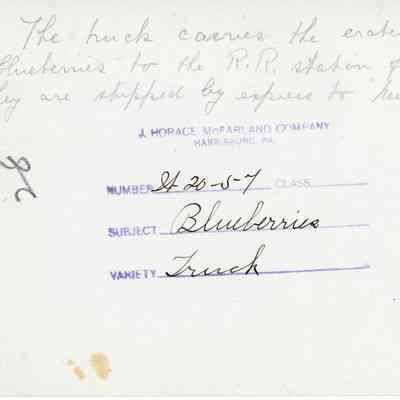 The truck carries the crate
Blueberries to the R.R. station
are shipped by express to
J. HORACE McFARLAND COMPANY
HARRISBURG, PA.
NUMBER St 20-5-7 CLASS
SUBJECT Blueberries
VARIETY Truck